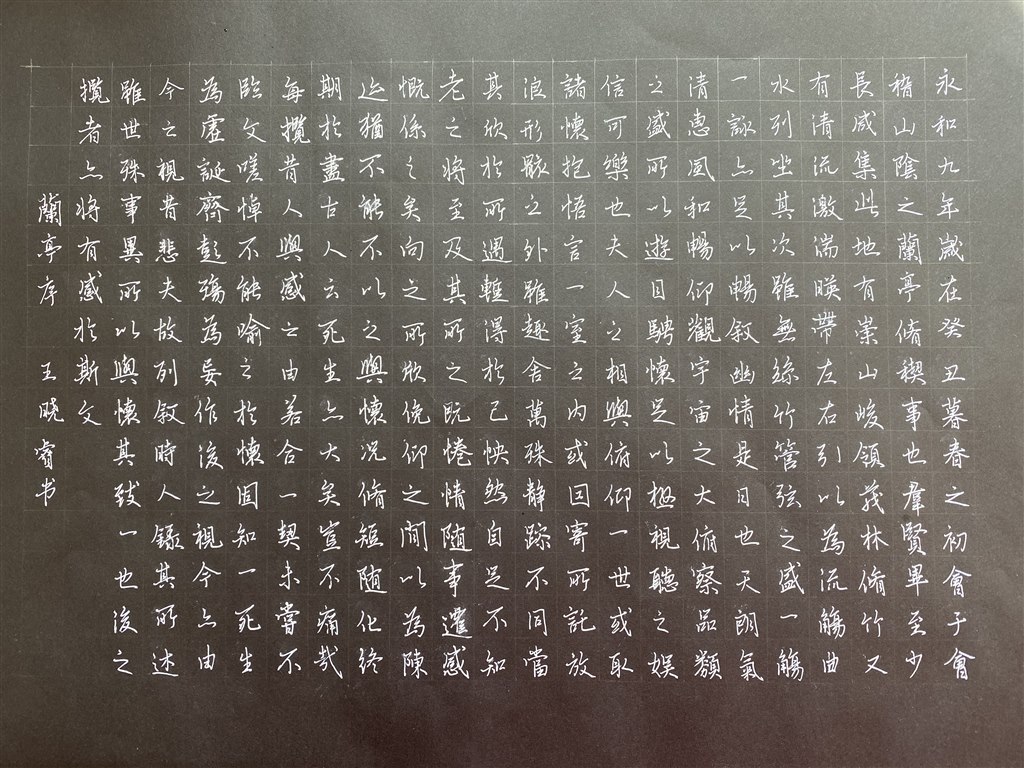 永和九年歲在癸丑暮春之初會于會
稽山陰之蘭亭脩稧事也羣賢畢至少
長咸集此地有崇山峻領茂林脩竹又
有清流激湍暎帶左右引以為流觴曲
水列坐其次雖無絲竹管弦之盛一觴
一詠亦足以暢敘幽情是日也天朗氣
清惠風和暢仰觀宇宙之大俯察品類
之盛所以遊目騁懷足以極視聽之娛
信可樂也夫人之相與俯仰一世或取
諸懷抱悟言一室之內或因寄所託放
浪形骸之外雖趣舍萬殊静躁不同當
其欣於所遇蹔得於己怏然自足不知
老之將至及其所之既惓情隨事遷感
慨係之矣向之所欣俛仰之間以為陳
迹猶不能不以之興懷況脩短隨化終
期於盡古人云死生亦大矣豈不痛哉
每攬昔人興感之由若合一契未嘗不
臨文嗟悼不能喻之於懷固知一死生
為虛誕齊彭殤為妄作後之視今亦由
今之視昔悲夫故列敘時人錄其所述
雖世殊事異所以興懷其致一也後之
攬者亦將有感於斯文
蘭亭序 王晓睿书